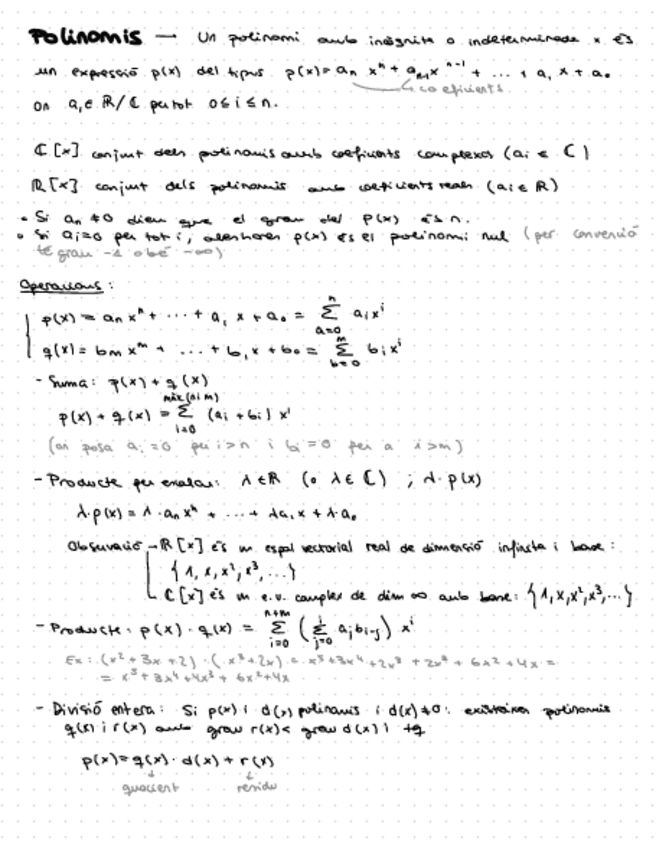 Polinomis — Un polinomi amb incògnita o indeterminada x és
un expressió p(x) del tipus p(x) = aₙ xⁿ + aₙ₋₁ xⁿ⁻¹ + ... + a₁ x + a₀
coeficients
on aᵢ ∈ ℝ/ℂ per tot 0 ≤ i ≤ n.
ℂ[x] conjunt dels polinomis amb coeficients complexos (aᵢ ∈ ℂ)
ℝ[x] conjunt dels polinomis amb coeficients reals (aᵢ ∈ ℝ)
• Si aₙ ≠ 0 diem que el grau del p(x) és n.
• Si aᵢ = 0 per tot i, aleshores p(x) és el polinomi nul (per convenció
té grau -1 o bé -∞)
Operacions:
p(x) = aₙ xⁿ + ... + a₁ x + a₀ = Σ_{a=0}^{n} aᵢ xⁱ
q(x) = bₘ xᵐ + ... + b₁ x + b₀ = Σ_{b=0}^{m} bᵢ xⁱ
- Suma: p(x) + q(x)
p(x) + q(x) = Σ_{i=0}^{màx(n i m)} (aᵢ + bᵢ) xⁱ
(on posa aᵢ = 0 per i > n i bᵢ = 0 per a i > m)
- Producte per escalar: λ ∈ ℝ (o λ ∈ ℂ) ; λ · p(x)
λ · p(x) = λ · aₙ xⁿ + ... + λa₁ x + λ · a₀
Observació - ℝ[x] és un espai vectorial real de dimensió infinita i base:
{1, x, x², x³, ...}
ℂ[x] és un e.v. complex de dim ∞ amb base: {1, x, x², x³, ...}
- Producte: p(x) · q(x) = Σ_{i=0}^{n+m} (Σ_{j=0}^{i} aⱼ bᵢ₋ⱼ) xⁱ
Ex: (x² + 3x + 2) · (x³ + 2x) = x⁵ + 3x⁴ + 2x³ + 2x³ + 6x² + 4x =
= x⁵ + 3x⁴ + 4x³ + 6x² + 4x
- Divisió entera: Si p(x) i d(x) polinomis i d(x) ≠ 0: existeixen polinomis
q(x) i r(x) amb grau r(x) < grau d(x) tq
p(x) = q(x) · d(x) + r(x)
quocient residu